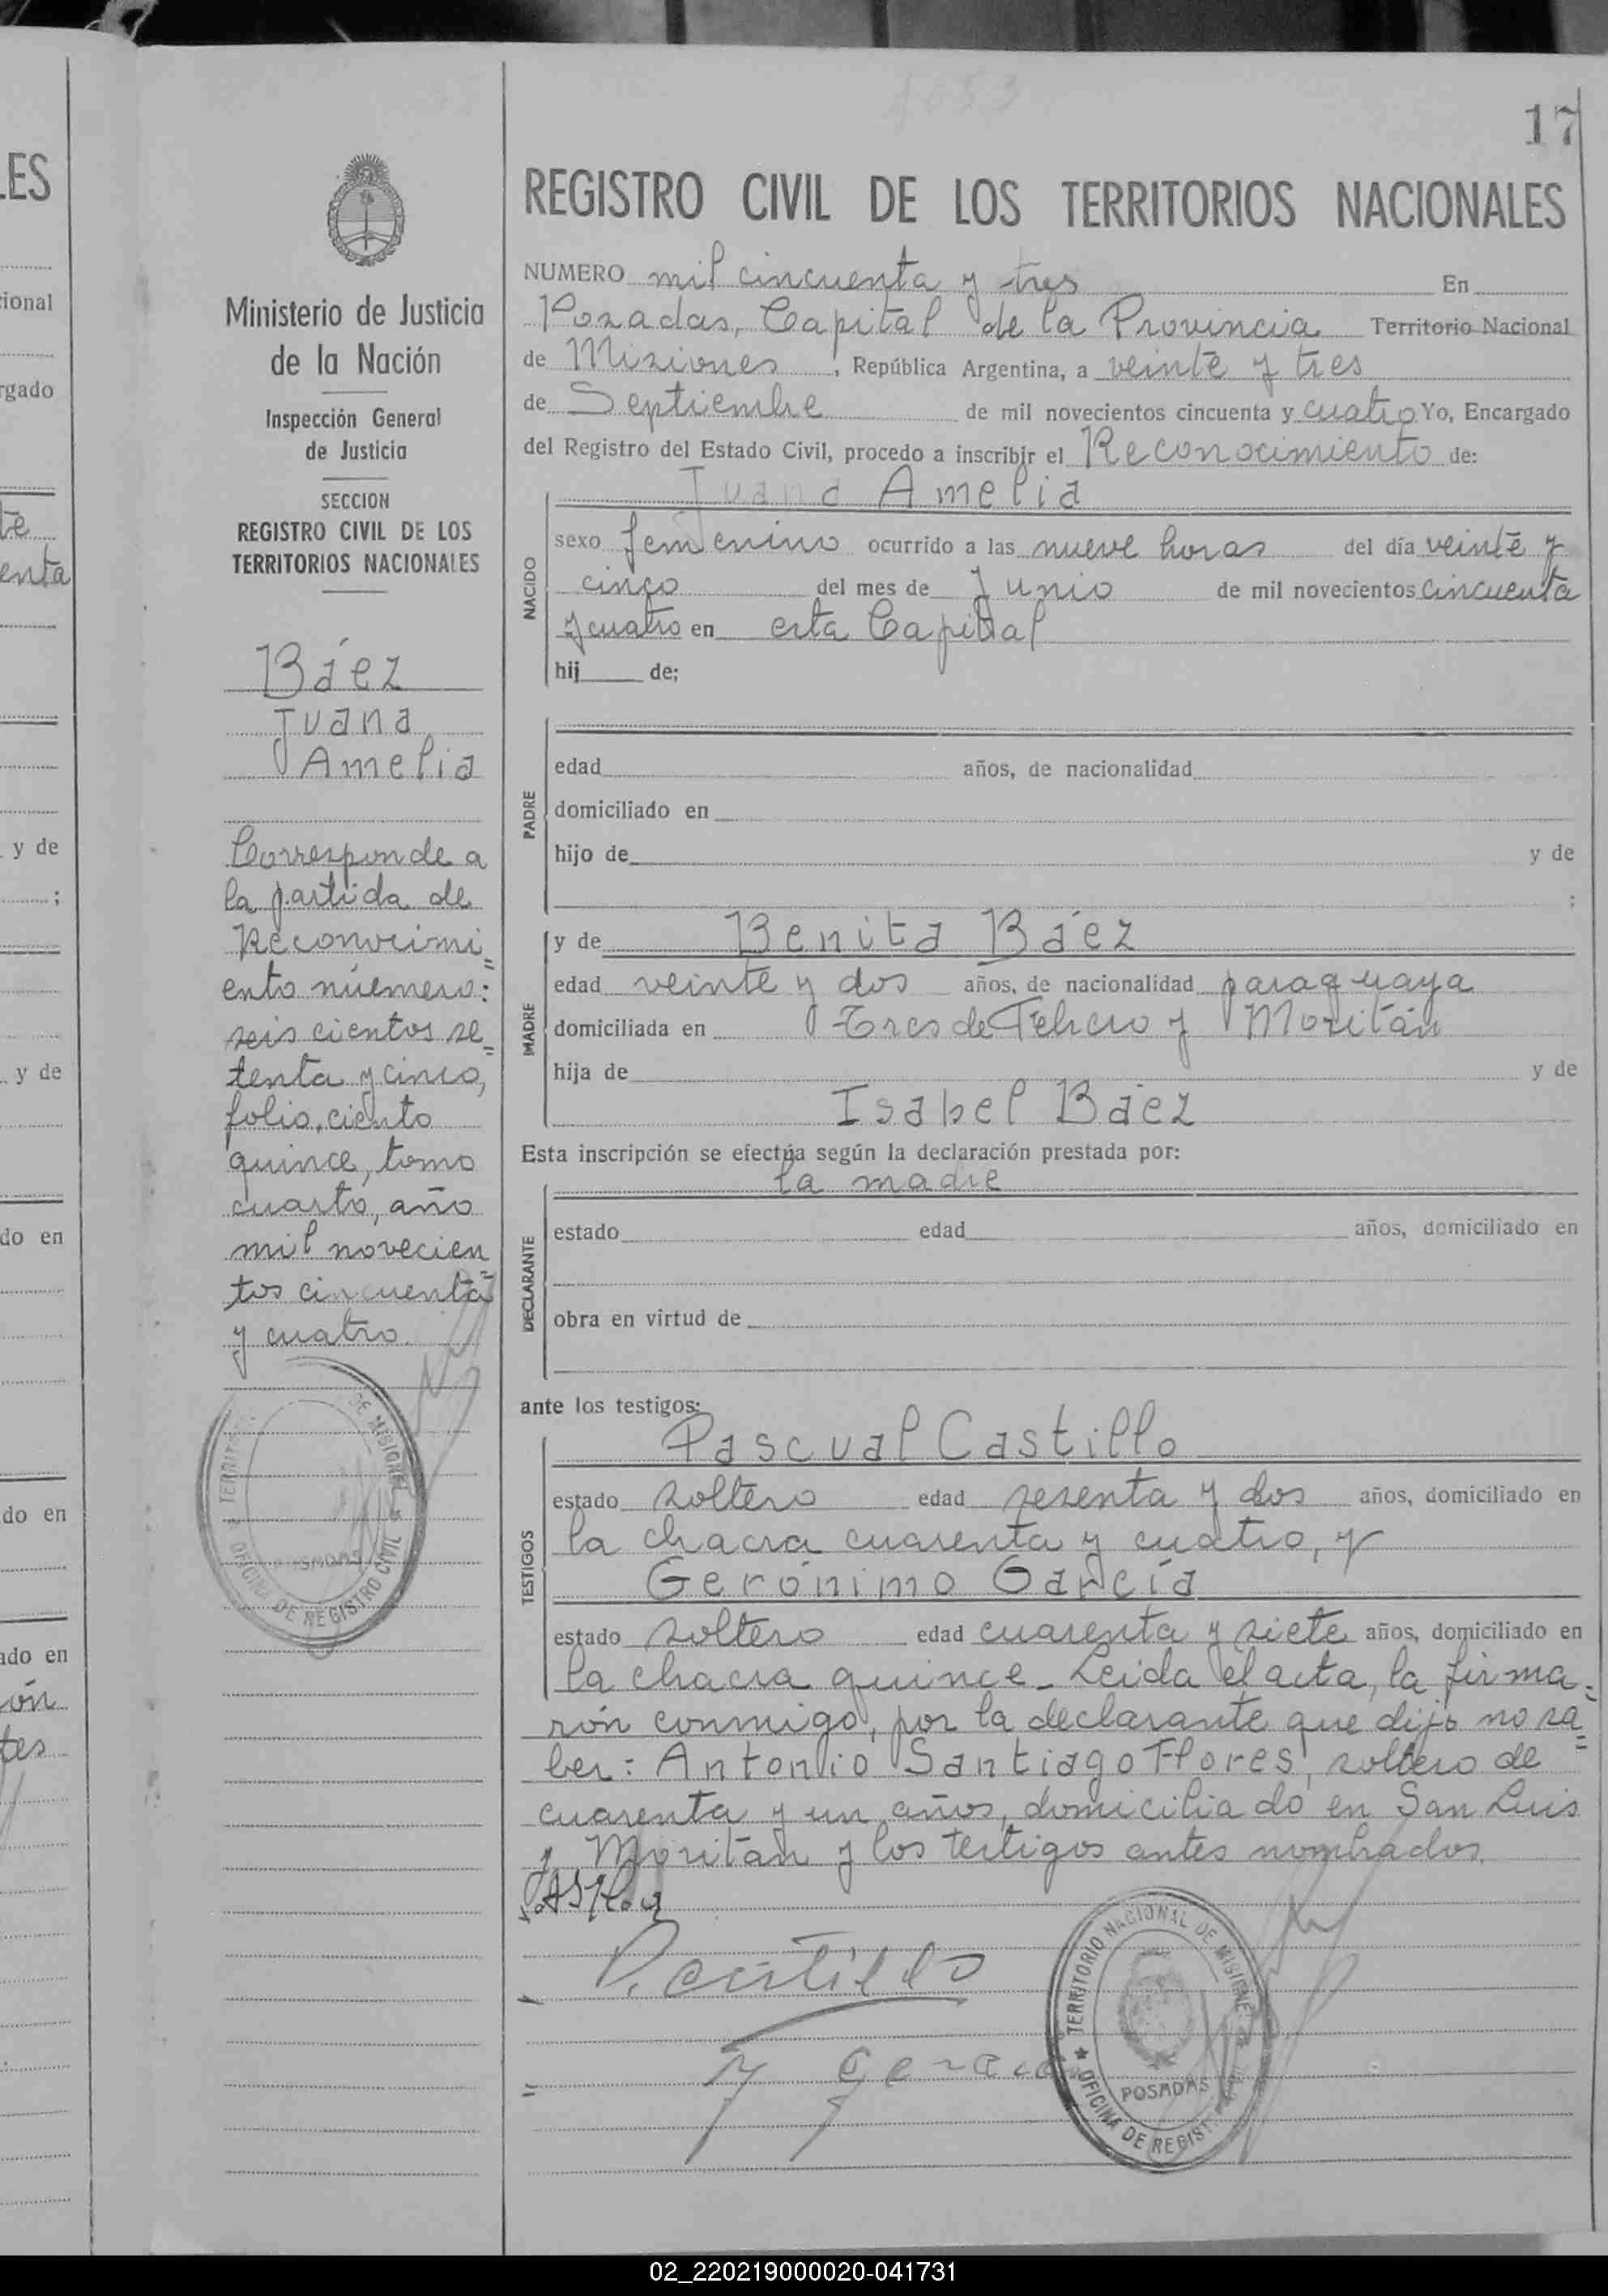 17
REGISTRO CIVIL DE LOS TERRITORIOS NACIONALES
NUMERO mil cincuenta y tres En
Posadas, Capital de la Provincia Territorio Nacional
de Misiones, República Argentina, a veinte y tres
de Septiembre de mil novecientos cincuenta y cuatro Yo, Encargado
del Registro del Estado Civil, procedo a inscribir el Reconocimiento de:
Juana Amelia
NACIDO
sexo femenino ocurrido a las nueve horas del día veinte y
cinco del mes de Junio de mil novecientos cincuenta
y cuatro en esta Capital
hij de;
PADRE
edad años, de nacionalidad
domiciliado en
hijo de y de
;
MADRE
y de Benita Báez
edad veinte y dos años, de nacionalidad paraguaya
domiciliada en Tres de Febrero y Moritán
hija de y de
Isabel Báez
Esta inscripción se efectúa según la declaración prestada por:
la madre
DECLARANTE
estado edad años, domiciliado en
obra en virtud de
ante los testigos:
TESTIGOS
Pascual Castillo
estado soltero edad sesenta y dos años, domiciliado en
la chacra cuarenta y cuatro, y
Gerónimo García
estado soltero edad cuarenta y siete años, domiciliado en
la chacra quince_ Leida el acta, la firma=
rón conmigo, por la declarante que dijo no sa=
ber: Antonio Santiago Flores, soltero de
cuarenta y un años, domiciliado en San Luis
y Moritán y los testigos antes nombrados.
P. Castillo
TERRITORIO NACIONAL DE MISIONES
POSADAS
OFICINA DE REGISTRO CIVIL
Ministerio de Justicia
de la Nación
Inspección General
de Justicia
SECCION
REGISTRO CIVIL DE LOS
TERRITORIOS NACIONALES
Báez
Juana
Amelia
Corresponde a
la partida de
Reconocimi=
ento número:
seis cientos se=
tenta y cinco,
folio, ciento
quince, tomo
cuarto, año
mil novecien=
tos cincuenta
y cuatro.
DE MISIONES
POSADAS
OFICINA DE REGISTRO CIVIL
LES
cional
rgado
te
enta
y de
;
y de
do en
do en
ado en
ón
tes
02_220219000020-041731